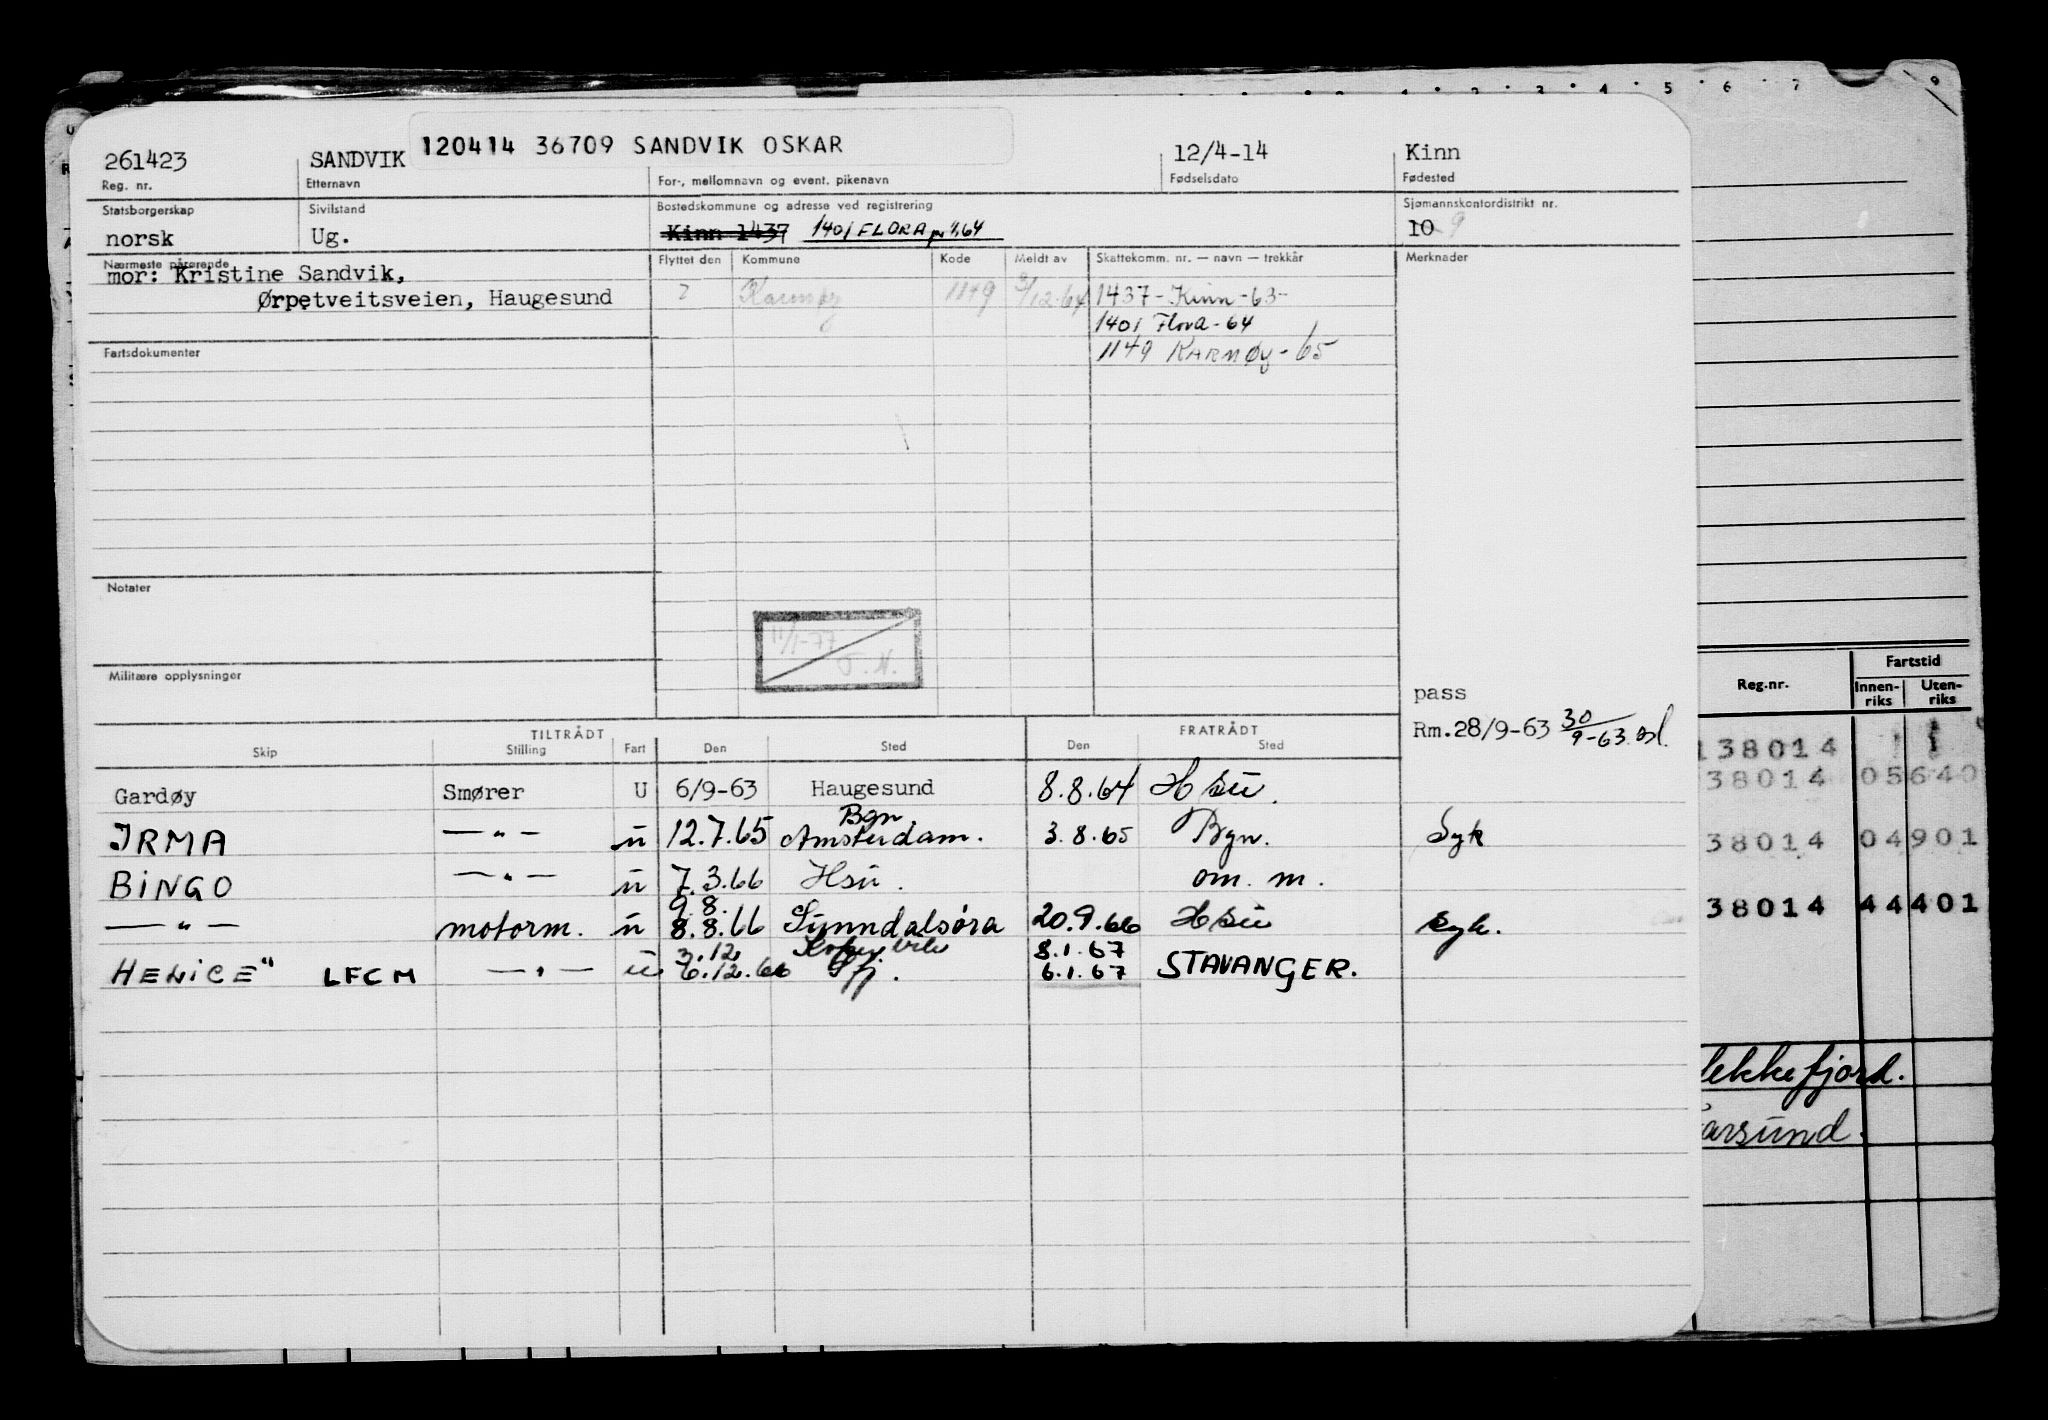 5 6 7 9
261423 SANDVIK 120414 36709 SANDVIK OSKAR 12/4-14 Kinn
Reg. nr. Etternavn For-, mellomnavn og event. pikenavn Fødselsdato Fødested
Statsborgerskap Sivilstand Bostedskommune og adresse ved registrering Sjømannskontordistrikt nr.
norsk Ug. Kinn 1437 1401 FLORA pr 1/1.64 10 9
Nærmeste pårørende Flyttet den Kommune Kode Meldt av Skattekomm. nr. — navn — trekkår Merknader
mor: Kristine Sandvik,
Ørpetveitsveien, Haugesund ? Karmøy 1149 9/12.64 1437-Kinn-63-
1401 Flora-64
Fartsdokumenter 1149 KARMØY-65
Notater
11/1-77
J.N.
Militære opplysninger
pass
Rm.28/9-63 30/9-63
TILTRÅDT FRATRÅDT
Skip Stilling Fart Den Sted Den Sted
Gardøy Smører U 6/9-63 Haugesund 8.8.64 Hsu.
Bgn
IRMA —"— u 12.7.65 Amsterdam. 3.8.65 Bgn. Syk
BINGO —"— u 7.3.66 Hsu. om. m.
9.8.
—"— motorm. u 8.8.66 Sunndalsøra 20.9.66 Hsu syk.
3.12 8.1.67
HELICE" LFCM —"— u 6.12.66 6.1.67 STAVANGER.
Reg.nr. Fartstid
Innen-riks Uten-riks
138014
38014 05640
38014 04901
38014 44401
lekkefjord.
arsund.